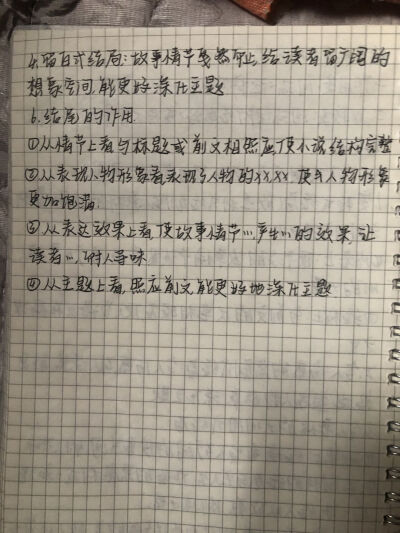 4.留白式结局:故事情节戛然而止,给读者留广阔的
想象空间,能更好深化主题
6.结尾的作用
①从情节上看,与标题或前文相照应,使小说结构完整
②从表现人物形象看,表现了人物的xx,xx,使人物形象
更加饱满
③从表达效果上看,使故事情节…,产生…的效果,让
读者…,耐人寻味
④从主题上看,照应前文,能更好地深化主题